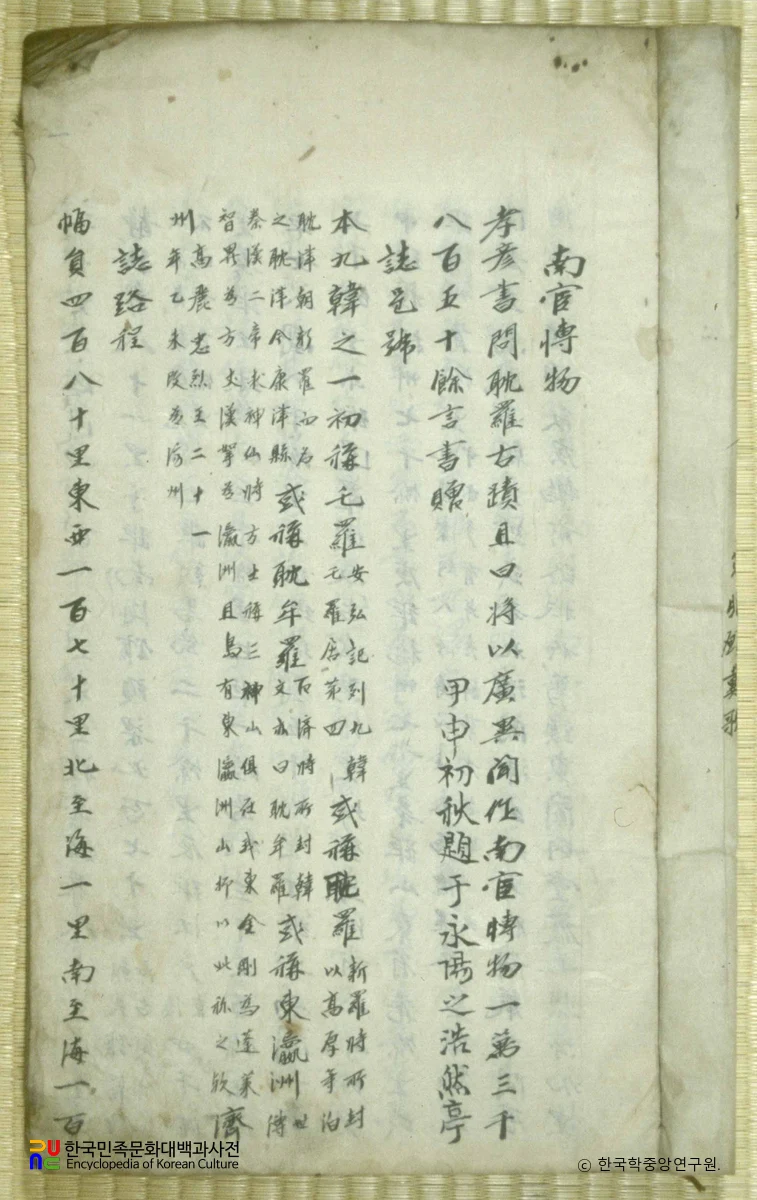 南宦博物
孝彦書問耽羅古蹟且曰將以廣異聞作南宦博物一萬三千
八百五十餘言書贈 甲申初秋題于永陽之浩然亭
誌邑號
本九韓之一初稱乇羅安弘記列九韓乇羅居第四或稱耽羅新羅時所封以高厚等泊
耽津朝新羅而居之耽津今康津縣或稱耽牟羅百濟時所封韓文亦曰耽牟羅或稱東瀛洲世傳
秦漢二帝求神仙時方士稱三神山俱在我東金剛為蓬萊
智異為方丈漢拏為瀛洲且島有東瀛洲山抑以此稱之歟濟
州高麗忠烈王二十一
州年乙未改為濟州
誌路程
幅員四百八十里東西一百七十里北至海一里南至海一百
한국민족문화대백과사전
Encyclopedia of Korean Culture
© 한국학중앙연구원.